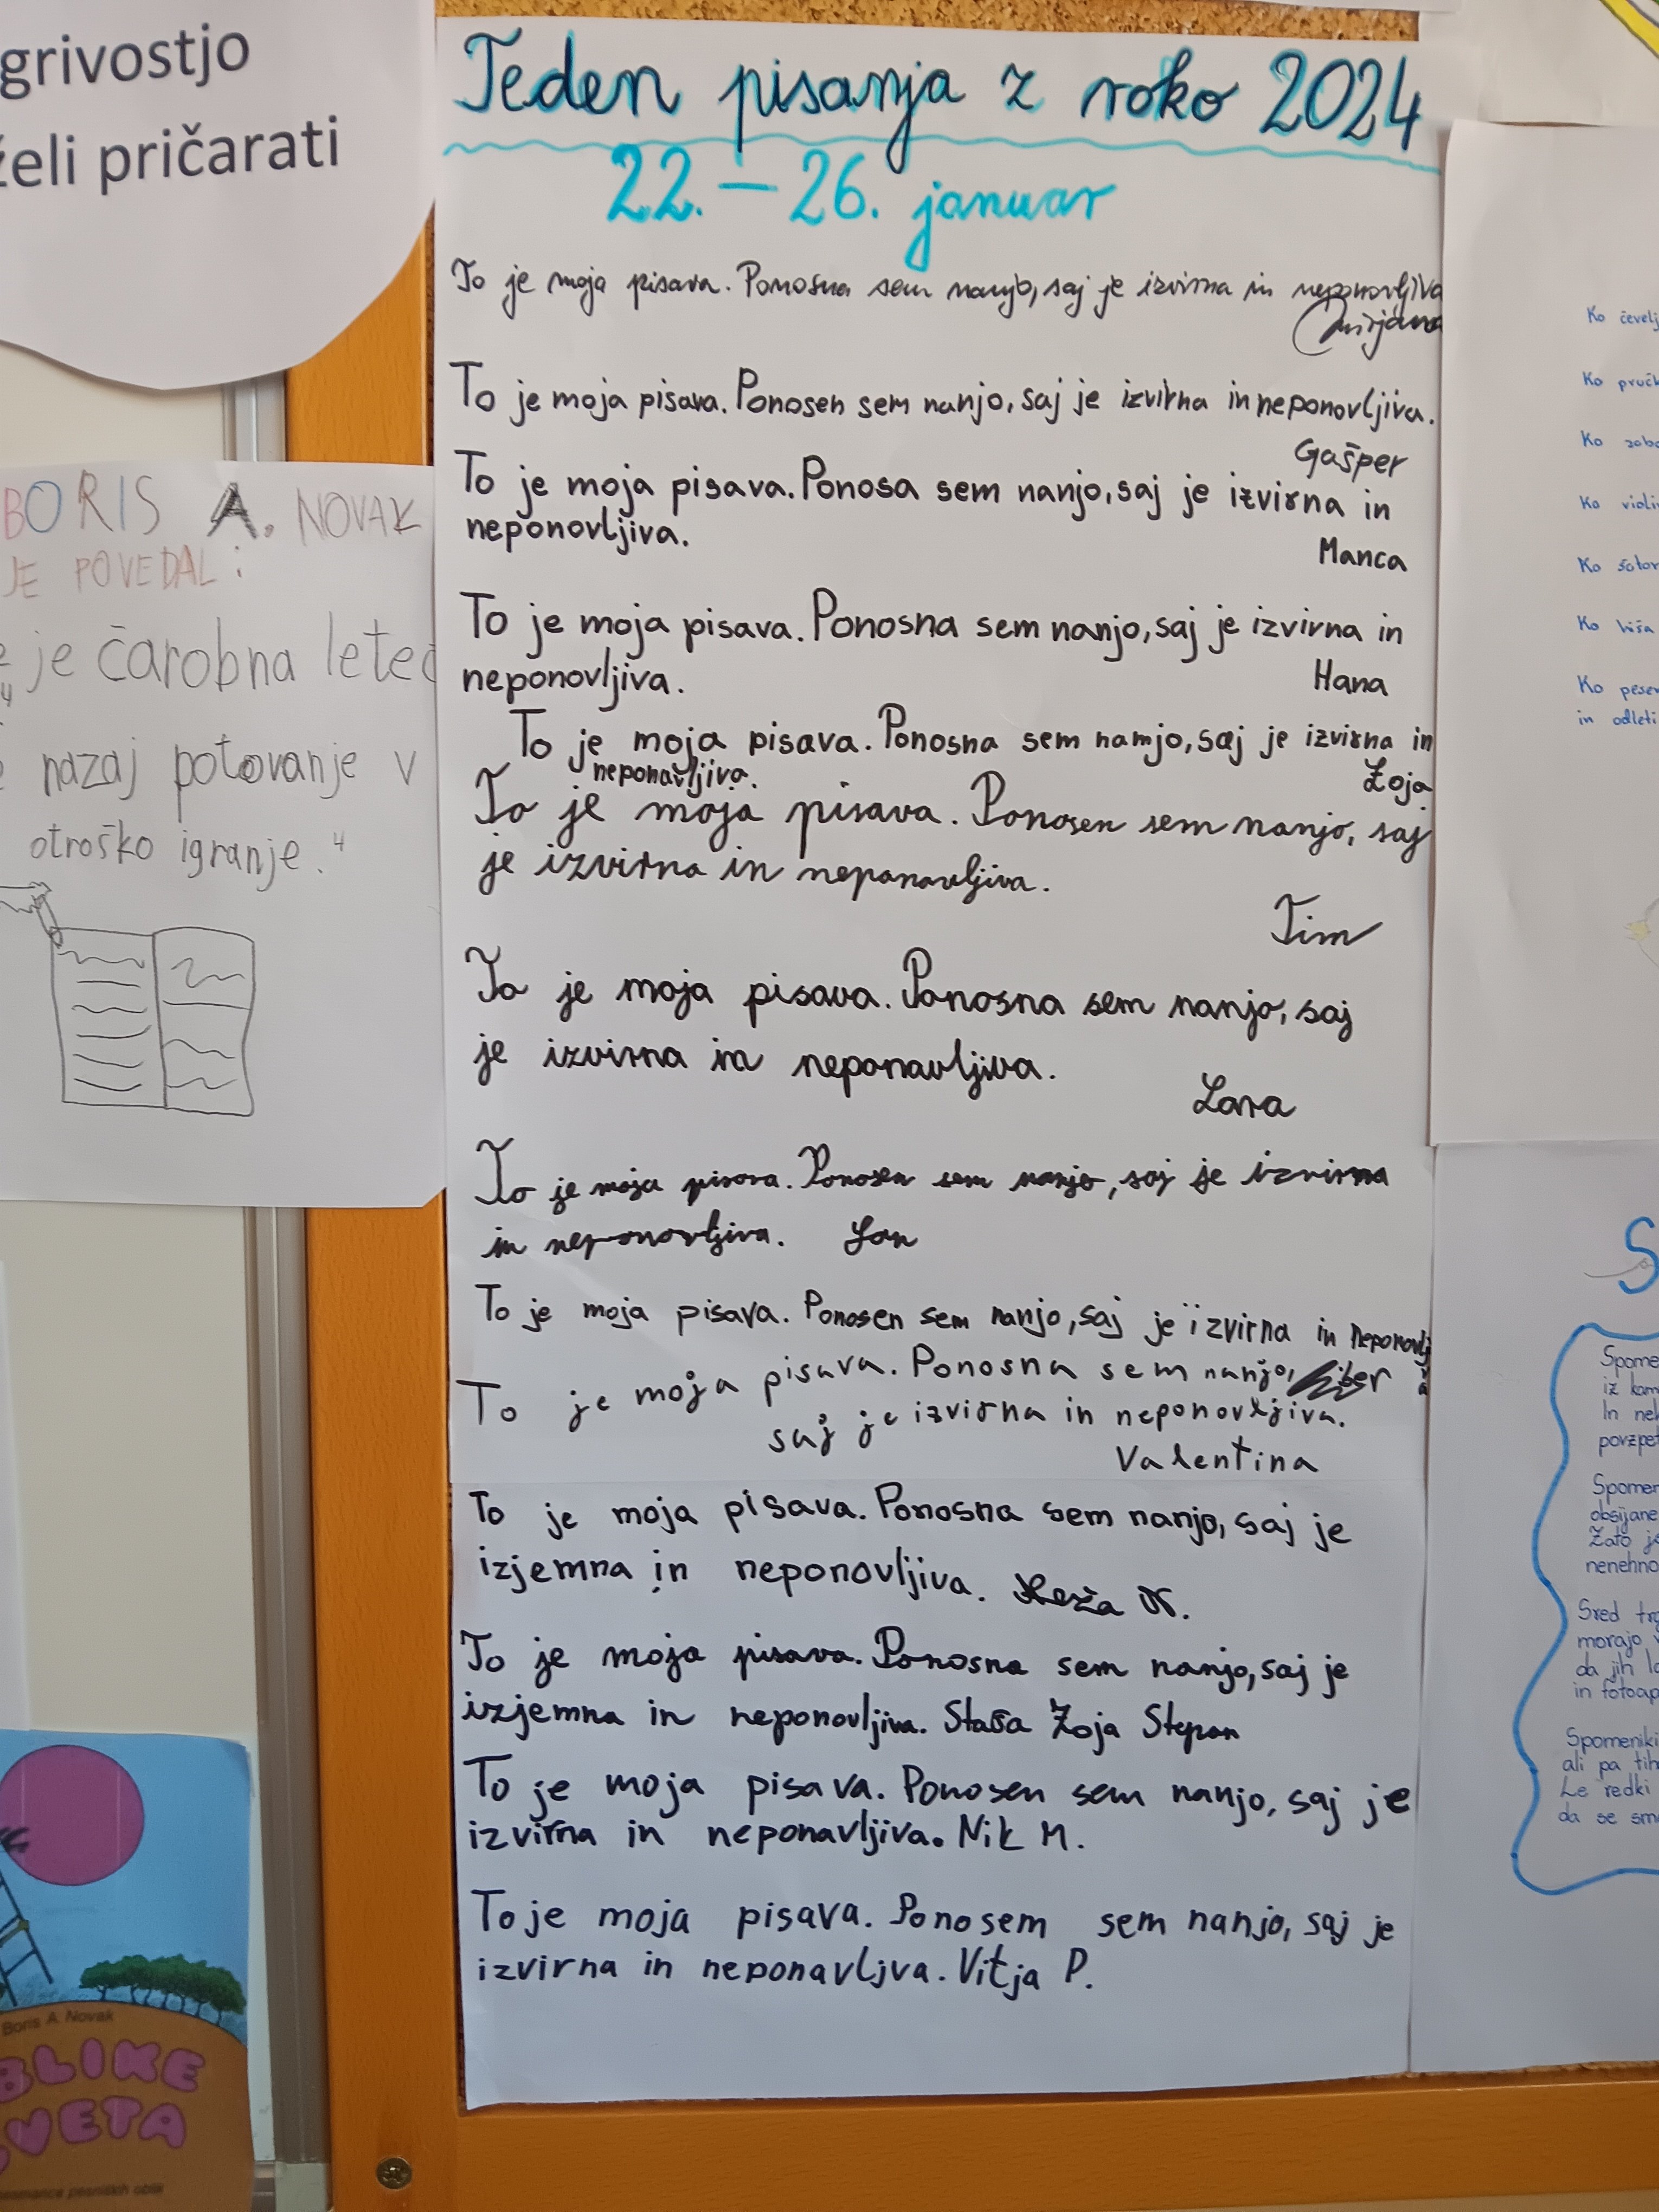 grivostjo
želi pričarati
BORIS A. NOVAK
JE POVEDAL:
je čarobna leteč
nazaj potovanje v
otroško igranje."
Boris A. Novak
BLIKE
SVETA
Teden pisanja z roko 2024
22. – 26. januar
To je moja pisava. Ponosna sem nanjo, saj je izvirna in neponovljiva
Mirjana
To je moja pisava. Ponosen sem nanjo, saj je izvirna in neponovljiva.
Gašper
To je moja pisava. Ponosa sem nanjo, saj je izvirna in
neponovljiva.
Manca
To je moja pisava. Ponosna sem nanjo, saj je izvirna in
neponovljiva.
Hana
To je moja pisava. Ponosna sem namjo, saj je izvirna in
neponavljiva.
Zoja
To je moja pisava. Ponosen sem nanjo, saj
je izvirna in neponavljiva.
Tim
To je moja pisava. Ponosna sem nanjo, saj
je izvirna in neponavljiva.
Lara
To je moja pisava. Ponosen sem nanjo, saj je izvirna
in neponovljiva. Jan
To je moja pisava. Ponosen sem nanjo, saj je izvirna in neponovljiva
To je moja pisava. Ponosna sem nanjo,
saj je izvirna in neponovljiva.
Valentina
To je moja pisava. Ponosna sem nanjo, saj je
izjemna in neponovljiva. Neža N.
To je moja pisava. Ponosna sem nanjo, saj je
izjemna in neponovljiva. Staša Zoja Stepan
To je moja pisava. Ponosen sem nanjo, saj je
izvirna in neponavljiva. Nik M.
To je moja pisava. Ponosem sem nanjo, saj je
izvirna in neponavljva. Vitja P.
Ko čevelj
Ko
Ko
Ko violi
Ko
Ko hiša
Ko peser
in odleti
S
Spome
iz kam
In nek
povzpet
Spomen
obsijane
Zato je
nenehno
Sred trg
morajo v
da jih lo
in fotoap
Spomeniki
ali pa tih
Le redki
da se sm